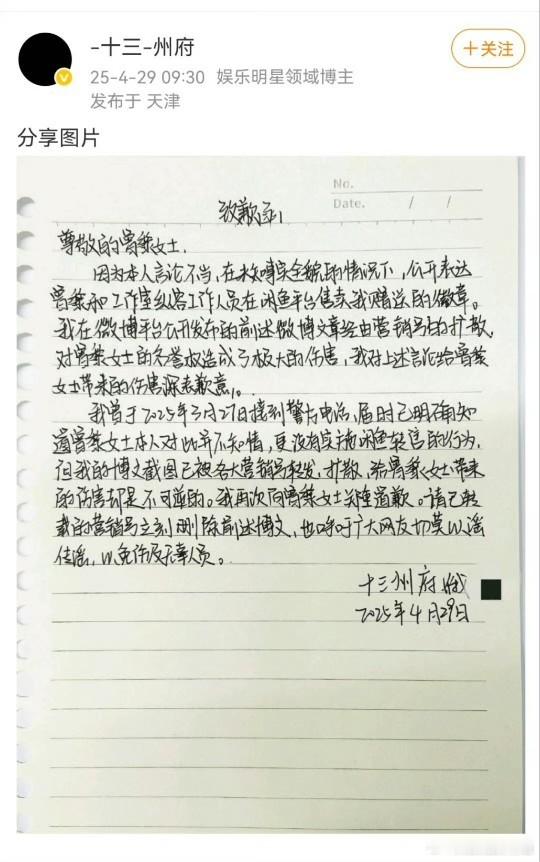 -十三-州府
+关注
25-4-29 09:30 娱乐明星领域博主
发布于 天津
分享图片
No.
Date. / /
致歉函
尊敬的曾黎女士,
因为本人言论不当,在未知全貌的情况下,公开表达
曾黎和工作室纵容工作人员在闲鱼平台售卖我赠送的徽章。
我在微博平台公开发布的前述微博文章经由营销号的扩散,
对曾黎女士的名誉权造成了极大的伤害,我对上述言论给曾黎
女士带来的伤害深表歉意。
我曾于2025年3月27日接到警方电话,届时已明确知
道曾黎女士本人对此并不知情,更没有实施闲鱼转售的行为,
但我的博文截图已被各大营销号转发、扩散,给曾黎女士带来
的伤害都是不可逆的。我再次向曾黎女士郑重道歉。请已转
载的营销号立刻删除前述博文,也呼吁广大网友切莫以谣
传谣,以免伤及无辜人员。
十三州府
2025年4月29日